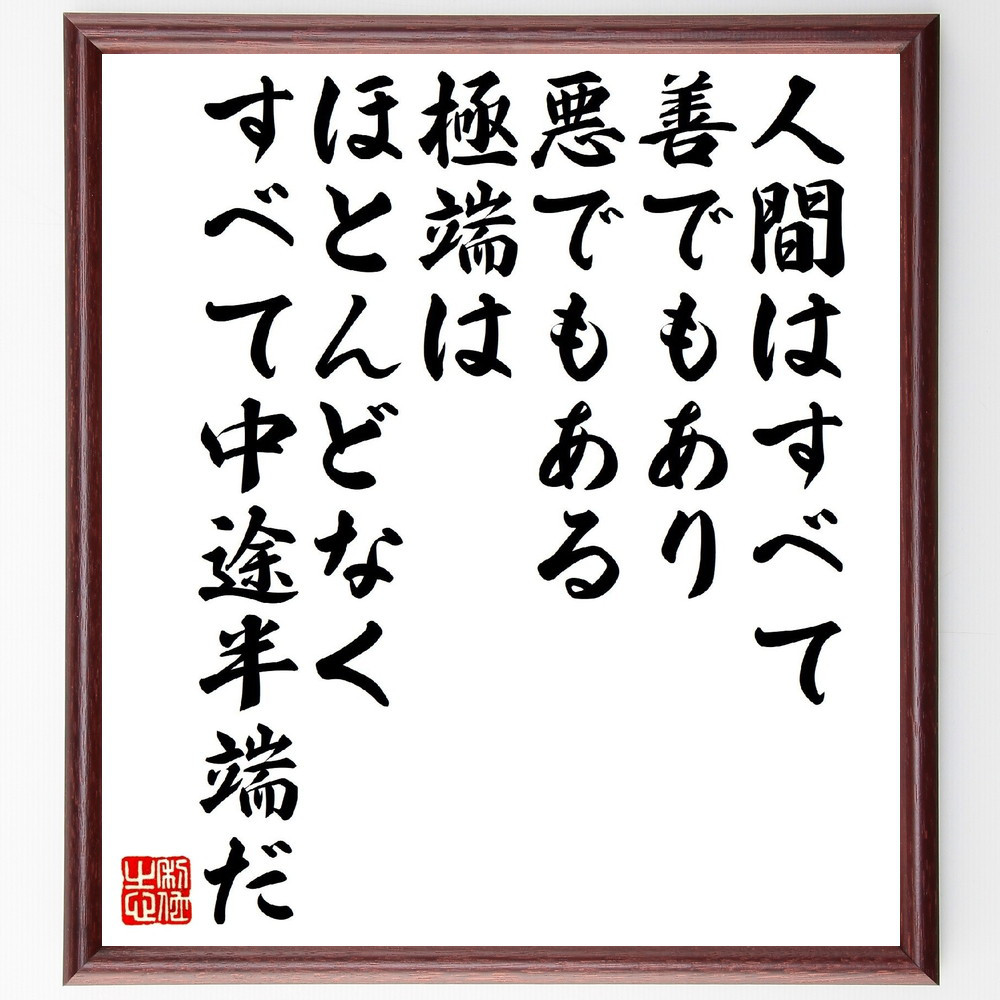 人間はすべて
善でもあり
悪でもある
極端は
ほとんどなく
すべて中途半端だ